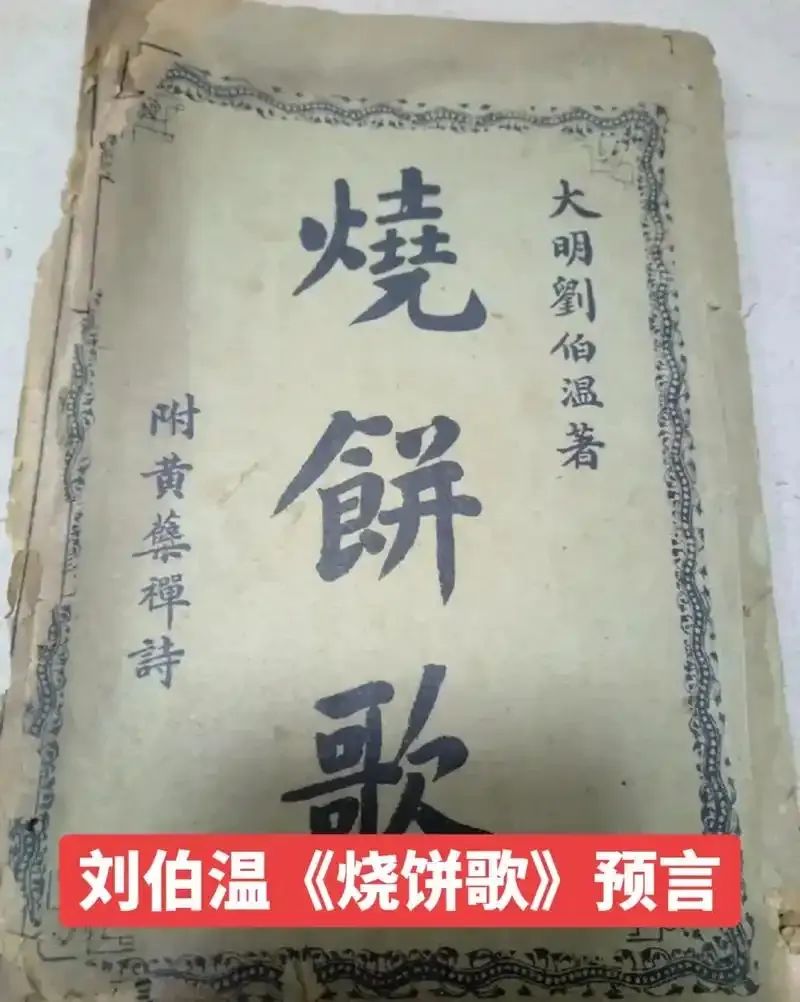 大明劉伯温著
燒餅歌
附黄蘗禪詩
刘伯温《烧饼歌》预言